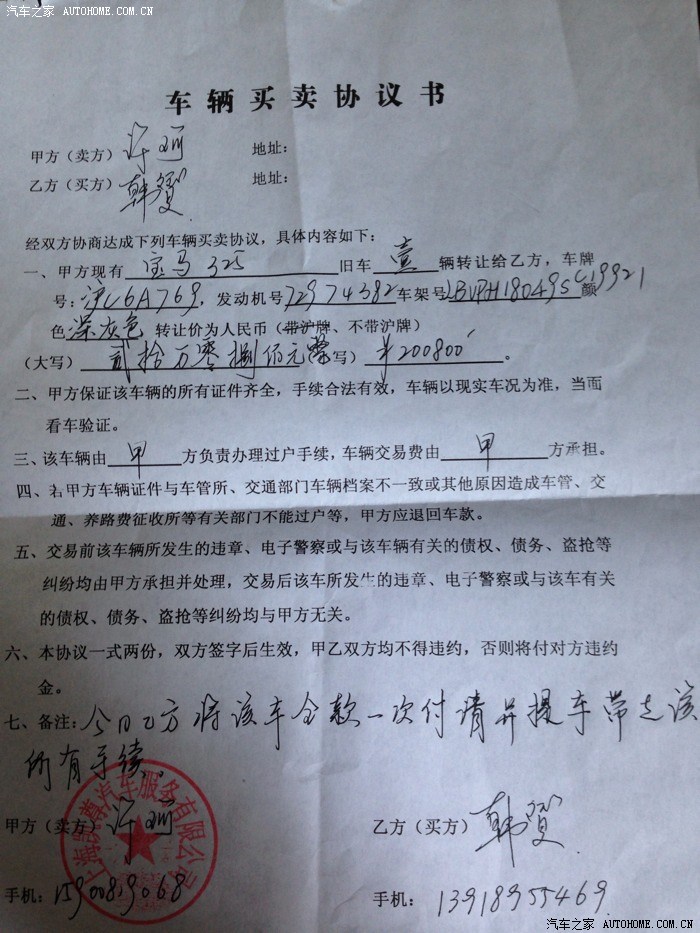 汽车之家 AUTOHOME.COM.CN
车辆买卖协议书
甲方（卖方）许 地址：
乙方（买方）韩贺 地址：
经双方协商达成下列车辆买卖协议，具体内容如下：
一、甲方现有 宝马325 旧车 壹 辆转让给乙方，车牌
号：沪C6A769，发动机号72974382车架号LBVPH18049SC19921颜
色深灰色 转让价为人民币（带沪牌、不带沪牌）
（大写）贰拾万零捌佰元 写）￥200800 。
二、甲方保证该车辆的所有证件齐全，手续合法有效，车辆以现实车况为准，当面
看车验证。
三、该车辆由 甲 方负责办理过户手续，车辆交易费由 甲 方承担。
四、若甲方车辆证件与车管所、交通部门车辆档案不一致或其他原因造成车管、交
通、养路费征收所等有关部门不能过户等，甲方应退回车款。
五、交易前该车辆所发生的违章、电子警察或与该车辆有关的债权、债务、盗抢等
纠纷均由甲方承担并处理，交易后该车所发生的违章、电子警察或与该车有关
的债权、债务、盗抢等纠纷均与甲方无关。
六、本协议一式两份，双方签字后生效，甲乙双方均不得违约，否则将付对方违约
金。
七、备注：今日乙方将该车全款一次付请并提车带走该
所有手续。
甲方（卖方）许 乙方（买方）韩贺
上海 尊汽车服务有限公司
手机：15900819068 手机：13918955469
汽车之家 AUTOHOME.COM.CN